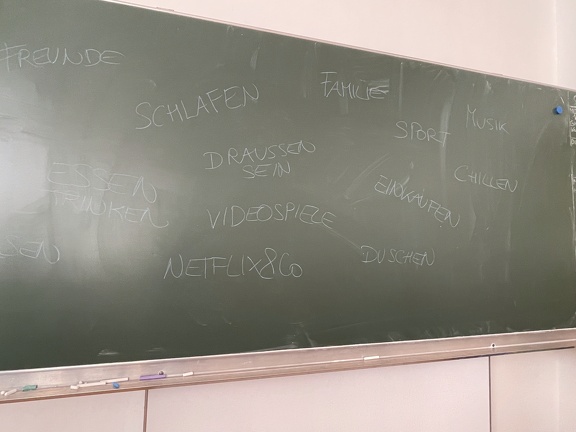 FREUNDE
FAMILIE
SCHLAFEN
MUSIK
SPORT
DRAUSSEN
SEIN
ESSEN
TRINKEN
CHILLEN
EINKAUFEN
VIDEOSPIELE
SEN
NETFLIX&CO
DUSCHEN